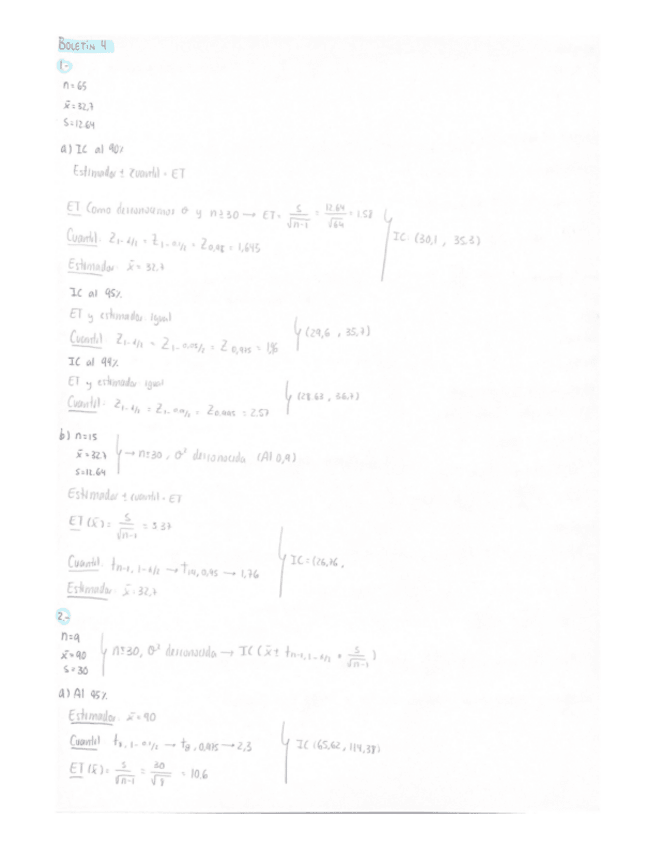 BOLETÍN 4
1-
n=65
x̄=32,7
S=12.64
a) IC al 90%
Estimador ± cuantil · ET
ET Como desconocemos σ y n≥30 → ET= S/√n-1 = 12.64/√64 = 1.58
IC: (30,1 , 35.3)
Cuantil: Z1-α/2 = Z1-0.1/2 = Z0,95 = 1,645
Estimador: x̄ = 32,7
IC al 95%
ET y estimador igual
Cuantil: Z1-α/2 = Z1-0.05/2 = Z0,975 = 1,96
(29,6 , 35,7)
IC al 99%
ET y estimador igual
Cuantil: Z1-α/2 = Z1-0.01/2 = Z0.995 = 2.57
(28.63 , 36.7)
b) n=15
x̄=32,7
S=12.64
→ n≤30, σ² desconocida (Al 0,9)
Estimador ± cuantil · ET
ET (x̄) = S/√n-1 = 3.37
Cuantil: tn-1, 1-α/2 → t14, 0,95 → 1,76
IC=(26,76 ,
Estimador: x̄=32,7
2-
n=9
x̄=90
S=30
n≤30, σ² desconocida → IC (x̄ ± tn-1, 1-α/2 * S/√n-1)
a) Al 95%
Estimador: x̄=90
Cuantil: t8, 1-α/2 → t8, 0,975 → 2,3
IC (65,62 , 114,38)
ET (x̄) = S/√n-1 = 30/√8 = 10.6